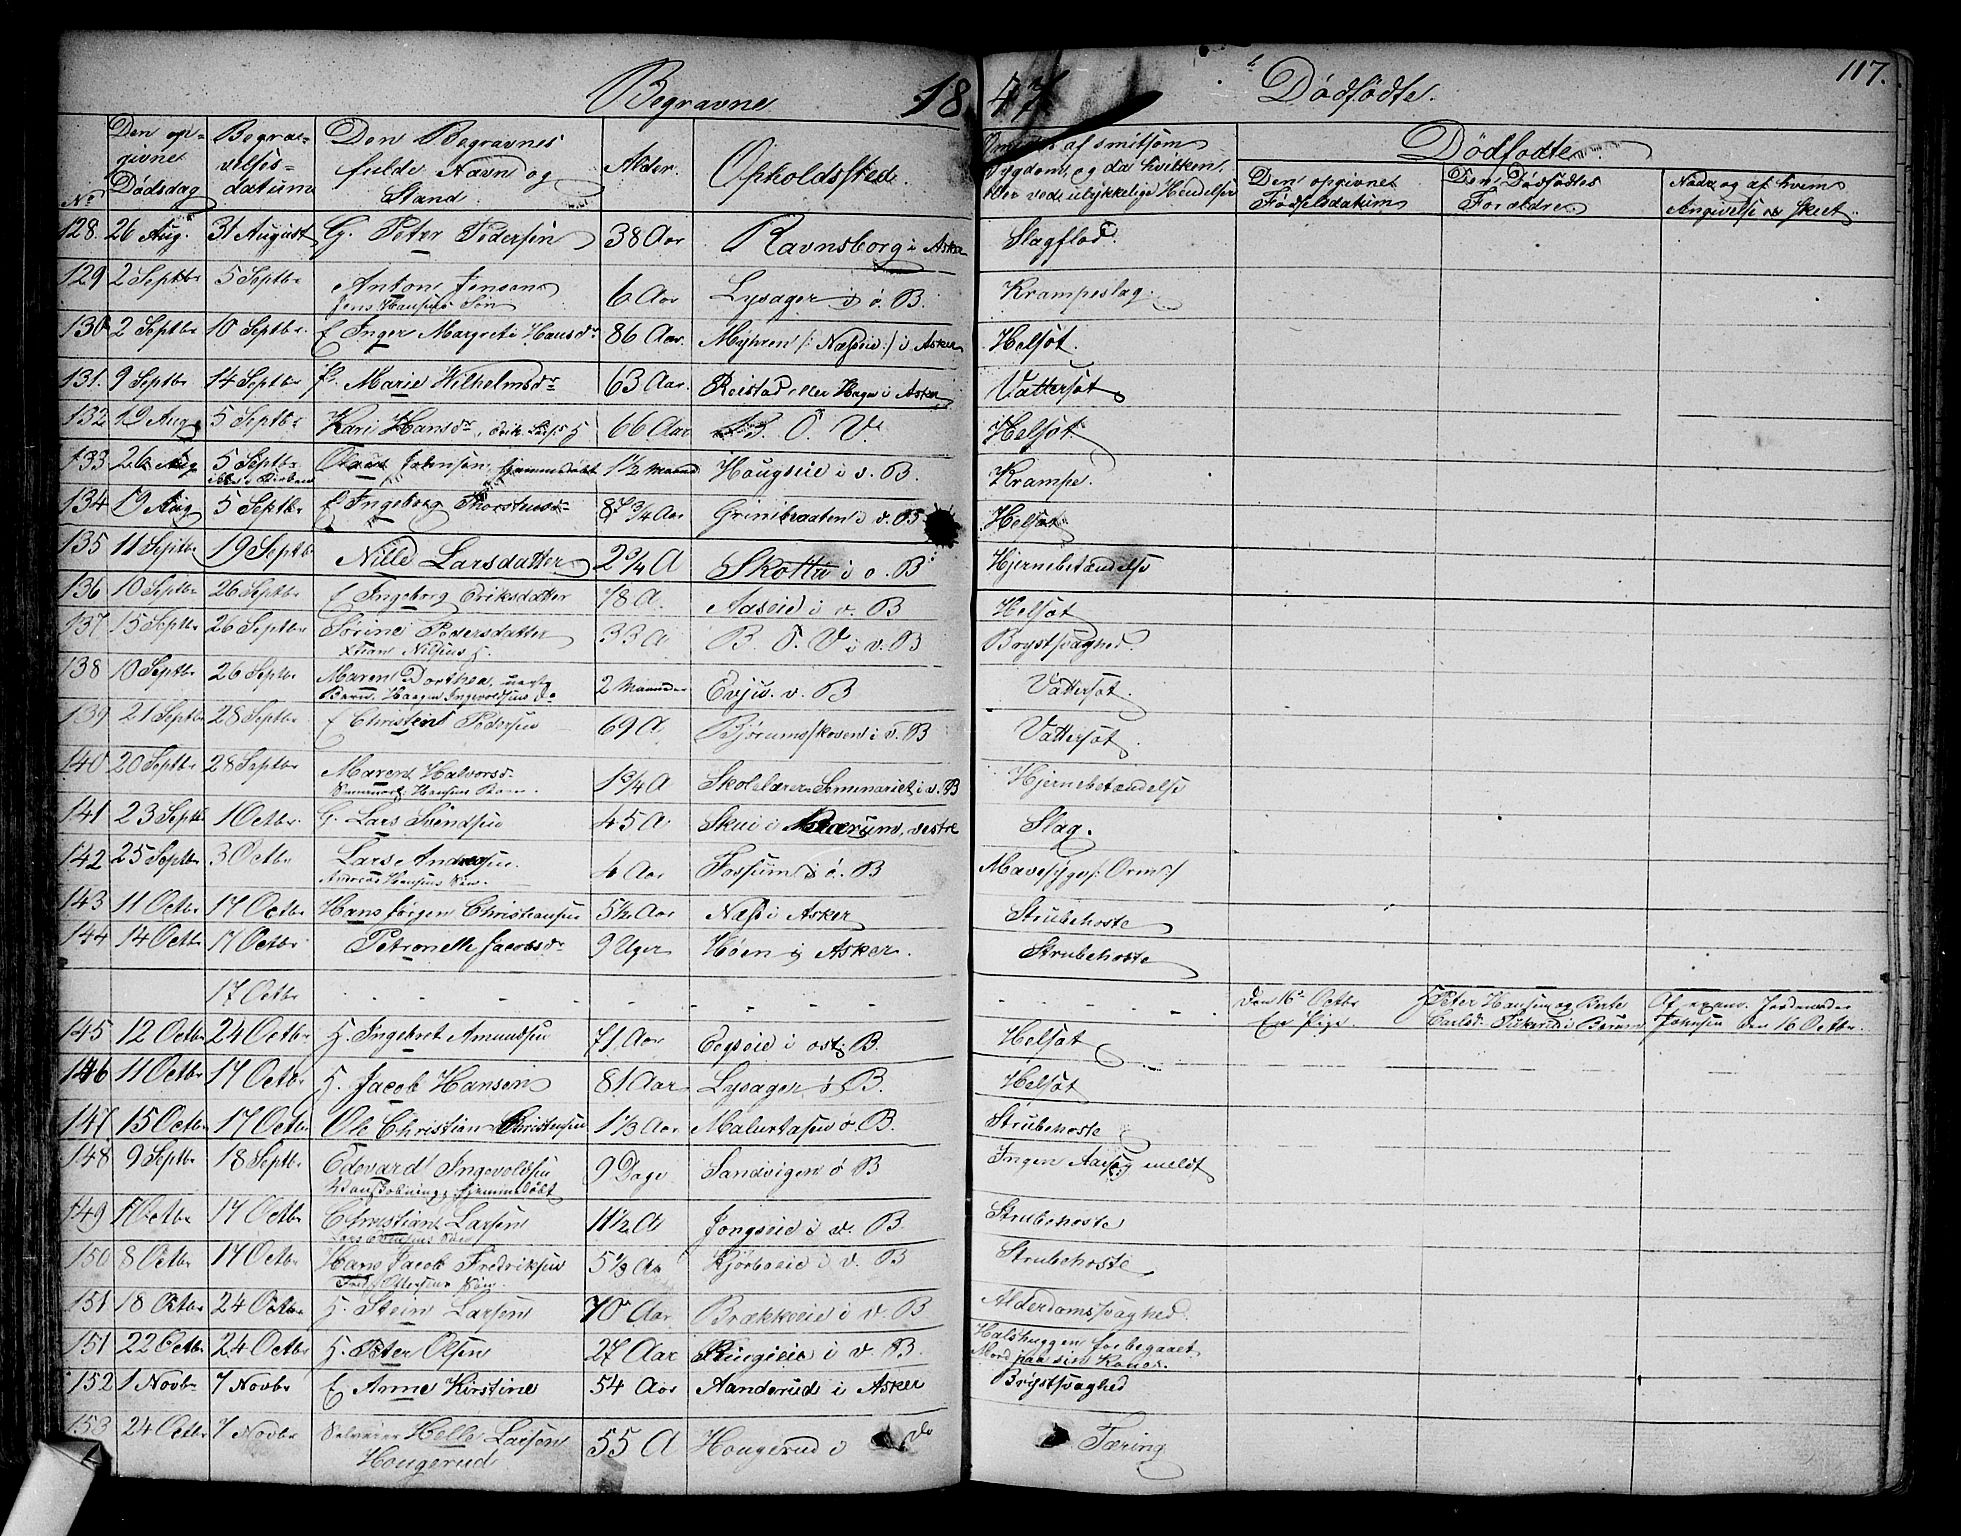 Begravne 1847 Dødfødte. 117.
No Den opgivne Dødsdag Begravelses-datum Den Begravnes fulde Navn og Stand. Alder. Opholdssted. af smitsom Sygdom, og da hvilken, eller ved ulykkelige Hendelser Dødfødte
Den opgivne Fødselsdatum Den Dødfødtes Forældre Naar og af hvem Angivelse er skeet.
128. 26 Aug. 31 August G. Peter Pedersen 38 Aar Ravnsborg i Asker Slagflod.
129 2 Septbr 5 Septbr Anton Jensen 6 Aar Lysager i ø. B. Krampeslag.
Jens Hansens Søn
130 2 Septbr 10 Septbr. E Inger Margrete Hansdr 86 Aar. Myhren /: Næseie :/ i Asker Helsot.
131. 9 Septbr 14 Septbr Marie Wilhelmsdr 63 Aar. Reistad eller Hagen i Asker Vattersot
132 19 Aug 5 Septbr Kari Hansdr, 66 Aar B. Ø. V. Helsot.
133 26 Aug 5 Septbr Johnsen, hjemmedøbt 1 1/2 Maaned Hougseie i v. B. Krampe.
134 19 Aug 5 Septbr E Ingeborg Thorstensdr 3/4 Aar Grinibraaten i v. B Helsot
135 11 Septbr 19 Septbr Nille Larsdatter 2 3/4 A Skotta i v. B Hjernebetændelse
136 10 Septbr 26 Septbr E Ingeborg Eriksdatter 78 A. Aaseie i v. B Helsot
137 15 Septbr 26 Septbr Sørine Pedersdatter 33 A B. Ø. V i v. B Brystsvaghed.
Nilsens H.
138 10 Septbr 26 Septbr Maren Dorthea, uægte 2 Maaneder Evje v. B Vattersot.
Barn Haagen Ingevoldsens
139 21 Septbr 28 Septbr. E Christen Pedersen 69 A Bjørumskoven i v. B Vattersot
140 20 Septbr 28 Septbr Maren Halvorsdr 1 3/4 A Skolelærer Seminariet i v. B Hjernebetændelse
Hansens Barn.
141 23 Septbr 1 Octbr. G. Lars Svendsen 45 A Skui i Bærum, vestre Slag.
142 25 Septbr 3 Octbr Lars Andersen. 4 Aar Fossum i ø. B Mavesyge /: Orm :/
Andreas Hansens Søn.
143 11 Octbr 17 Octbr Hans Jørgen Christiansen 5 1/2 Aar Næs i Asker Strubehoste
144 14 Octbr 17 Octbr Petronelle Jacobsdr 9 Uger Høen i Asker. Strubehoste
17 Octbr Den 16de Octbr Peter Hansen og Berte Af Jordemoder
En Pige. i Bærum Johnsen den 16 Octbr.
145 12 Octbr 24 Octbr H. Ingebret Amundsen 71 Aar Eegseie i ost. B. Helsot
146 11 Octbr 17 Octbr H. Jacob Hansen 81 Aar Lysager ø B. Helsot
147 15 Octbr 17 Octbr Ole Christian Christensen 1 1/3 Aar Malurtasen ø. B. Strubehoste
148 9 Septbr 18 Septbr Edevard Ingevoldsen 9 Dage Sandvigen ø B Ingen Aarsag meldt
hjemmedøbt
149 Octbr 17 Octbr Christian Larsen 11 1/2 A Jongseie i v. B. Strubehoste
150 8 Octbr 17 Octbr Hans Jacob Fredriksen 5 1/3 Aar Kjørboeie i v. B Strubehoste
Søn.
151 18 Octbr 24 Octbr H. Stein Larsen 70 Aar Brækkeeie i v. B Alderdomssvaghed.
151 22 Octbr 24 Octbr H. Peter Olsen 27 Aar Ringieie i v. B. Halshuggen for begaaet
Mord paa sin Kone.
152 1 Novbr 7 Novbr E Anne Kirstine 54 Aar Aanderud i Asker Brystsvaghed
153 24 Octbr 7 Novbr Selveier Helle Larsen 55 A Hougerud i do Tæring
Hougerud